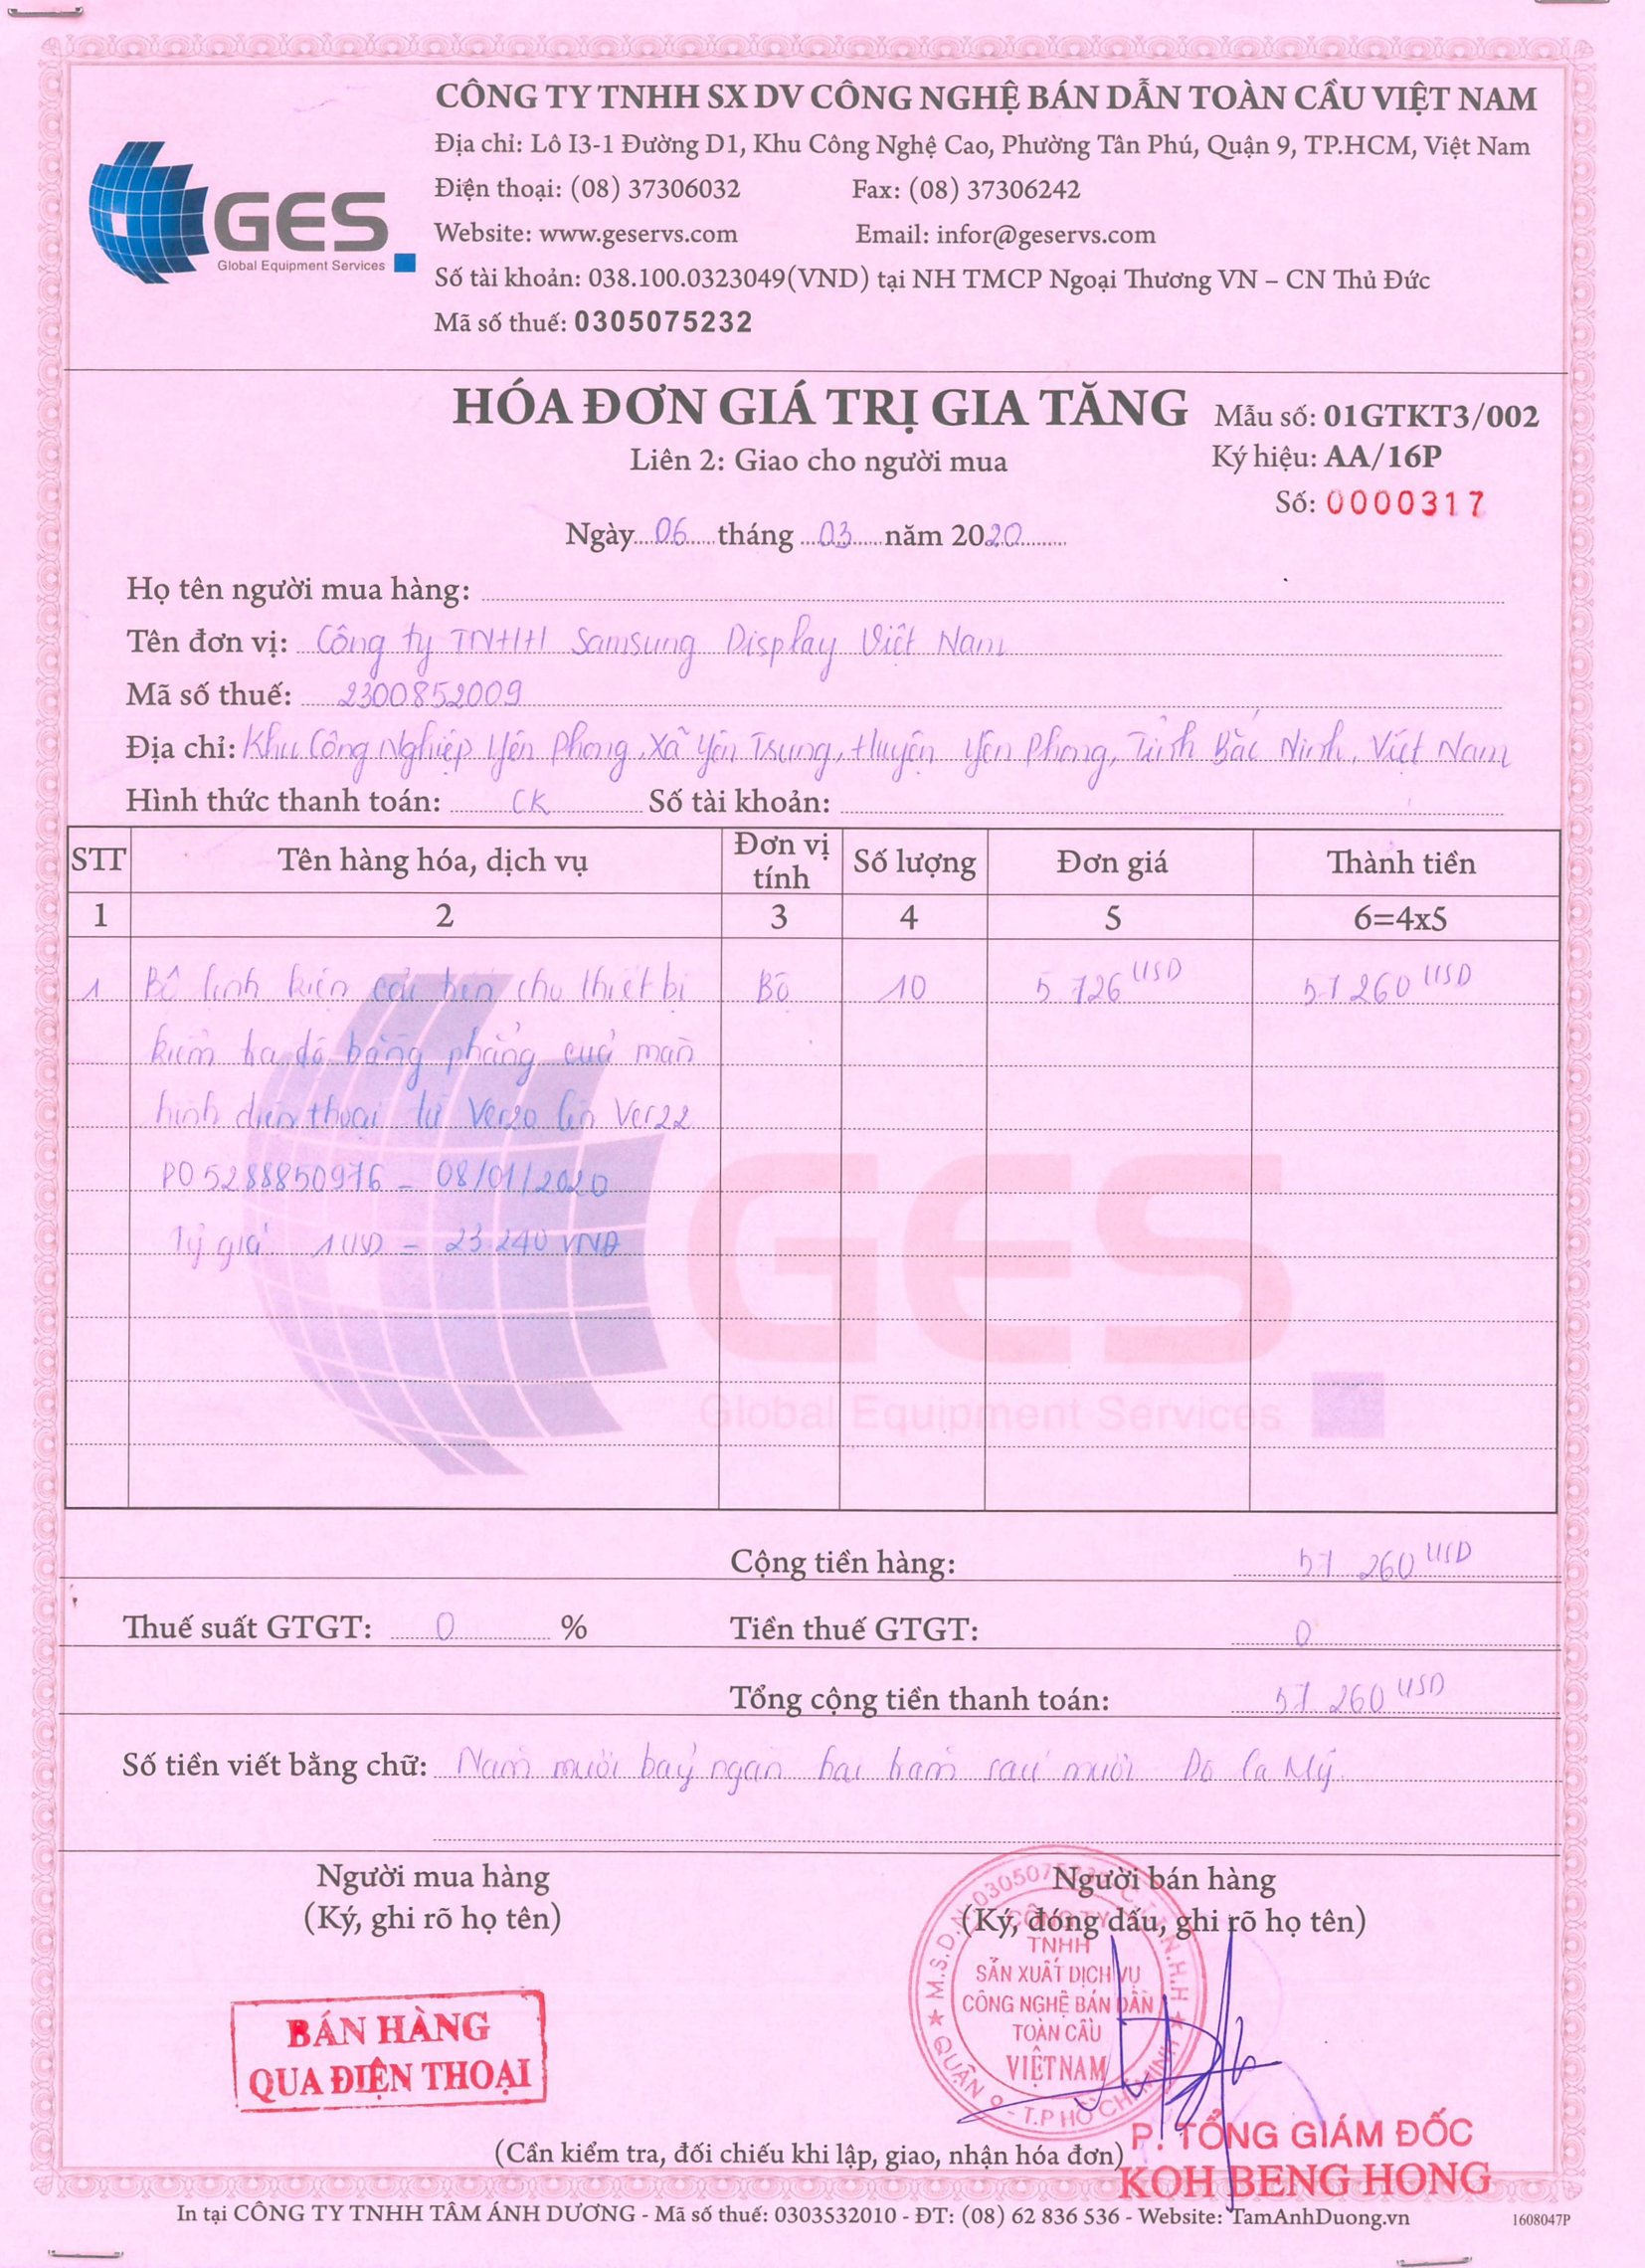 CÔNG TY TNHH SX DV CÔNG NGHỆ BÁN DẪN TOÀN CẦU VIỆT NAM
Địa chỉ: Lô I3-1 Đường D1, Khu Công Nghệ Cao, Phường Tân Phú, Quận 9, TP.HCM, Việt Nam
Điện thoại: (08) 37306032 Fax: (08) 37306242
GES
Website: www.geservs.com Email: infor@geservs.com
Global Equipment Services
Số tài khoản: 038.100.0323049(VND) tại NH TMCP Ngoại Thương VN – CN Thủ Đức
Mã số thuế: 0305075232
HÓA ĐƠN GIÁ TRỊ GIA TĂNG Mẫu số: 01GTKT3/002
Liên 2: Giao cho người mua Ký hiệu: AA/16P
Số: 0000317
Ngày 06 tháng 03 năm 2020
Họ tên người mua hàng:
Tên đơn vị: Công ty TNHH Samsung Display Việt Nam
Mã số thuế: 2300852009
Địa chỉ: Khu Công Nghiệp Yên Phong, Xã Yên Trung, Huyện Yên Phong, Tỉnh Bắc Ninh, Việt Nam
Hình thức thanh toán: CK Số tài khoản:
STT Tên hàng hóa, dịch vụ Đơn vị tính Số lượng Đơn giá Thành tiền
1 2 3 4 5 6=4x5
1 Bộ linh kiện cải tiến cho thiết bị Bộ 10 5.726 USD 57.260 USD
kiểm tra độ bằng phẳng của màn
hình điện thoại từ Ver20 lên Ver22
PO 5288850976 - 08/01/2020
Tỷ giá 1USD = 23.240 VNĐ
GES
Global Equipment Services
Cộng tiền hàng: 57.260 USD
Thuế suất GTGT: 0 % Tiền thuế GTGT: 0
Tổng cộng tiền thanh toán: 57.260 USD
Số tiền viết bằng chữ: Năm mươi bảy ngàn hai trăm sáu mươi Đô la Mỹ.
Người mua hàng Người bán hàng
(Ký, ghi rõ họ tên) (Ký, đóng dấu, ghi rõ họ tên)
CÔNG TY
TNHH
SẢN XUẤT DỊCH VỤ
CÔNG NGHỆ BÁN DẪN
TOÀN CẦU
VIỆT NAM
QUẬN 9 - T.P HỒ CHÍ MINH
BÁN HÀNG
QUA ĐIỆN THOẠI
P. TỔNG GIÁM ĐỐC
(Cần kiểm tra, đối chiếu khi lập, giao, nhận hóa đơn)
KOH BENG HONG
In tại CÔNG TY TNHH TÂM ÁNH DƯƠNG - Mã số thuế: 0303532010 - ĐT: (08) 62 836 536 - Website: TamAnhDuong.vn 1608047P